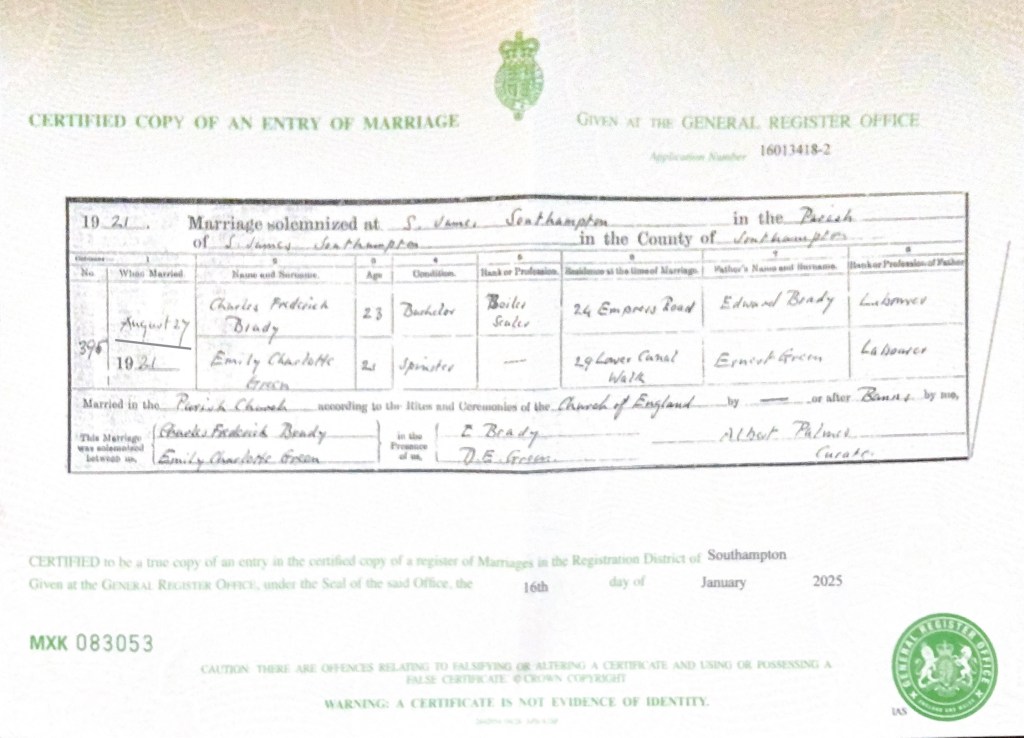 CERTIFIED COPY OF AN ENTRY OF MARRIAGE
GIVEN AT THE GENERAL REGISTER OFFICE
Application Number 16013418-2
1921. Marriage solemnized at S. James Southampton in the Parish
of S. James Southampton in the County of Southampton
1 2 3 4 5 6 7 8
No. When Married. Name and Surname. Age Condition. Rank or Profession. Residence at the time of Marriage. Father's Name and Surname. Rank or Profession of Father
396 August 27 1921
Charles Frederick Brady 23 Bachelor Boiler Scaler 24 Empress Road Edward Brady Labourer
Emily Charlotte Green 21 Spinster — 29 Lower Canal Walk Ernest Green Labourer
Married in the Parish Church according to the Rites and Ceremonies of the Church of England by — or after Banns by me,
This Marriage was solemnized between us, Charles Frederick Brady in the Presence of us, E Brady Albert Palmer
Emily Charlotte Green D. E. Green Curate.
CERTIFIED to be a true copy of an entry in the certified copy of a register of Marriages in the Registration District of Southampton
Given at the GENERAL REGISTER OFFICE, under the Seal of the said Office, the 16th day of January 2025
MXK 083053
CAUTION: THERE ARE OFFENCES RELATING TO FALSIFYING OR ALTERING A CERTIFICATE AND USING OR POSSESSING A
FALSE CERTIFICATE © CROWN COPYRIGHT
WARNING: A CERTIFICATE IS NOT EVIDENCE OF IDENTITY.
GENERAL REGISTER OFFICE
ENGLAND AND WALES
IAS